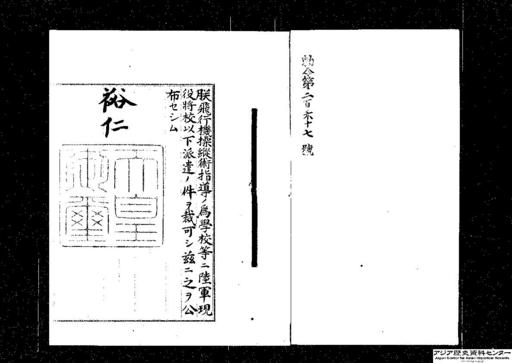 勅令第二百六十七號
朕飛行機操縱術指導ノ爲學校等ニ陸軍現
役將校以下派遣ノ件ヲ裁可シ茲ニ之ヲ公
布セシム
裕仁
天皇御璽
アジア歴史資料センター
Japan Center for Asian Historical Records